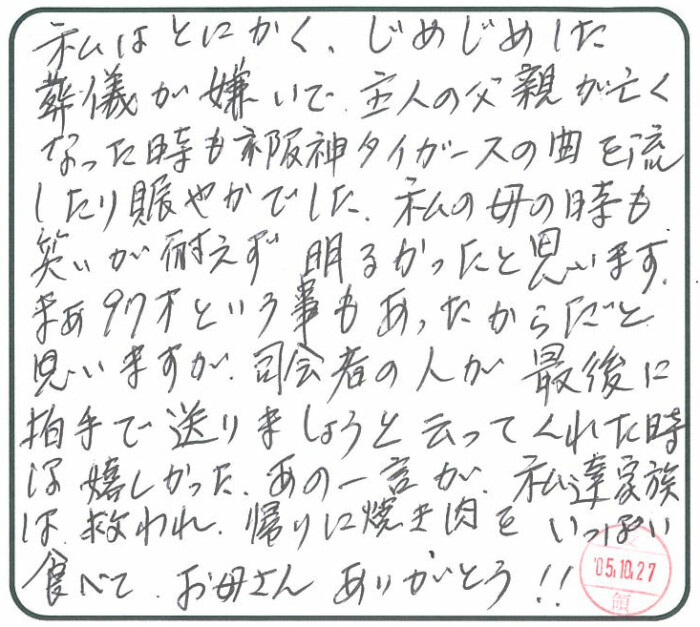 私はとにかく、じめじめした
葬儀が嫌いで、主人の父親が亡く
なった時も阪神タイガースの曲を流
したり賑やかでした、私の母の時も
笑いが耐えず 明るかったと思います。
まあ97才という事もあったからだと
思いますが、司会者の人が 最後に
拍手で送りましょうと云ってくれた時
は嬉しかった、あの一言が、私達家族
は、救われ、帰りに焼き肉をいっぱい
食べて、お母さん ありがとう!!
'05.10.27
領